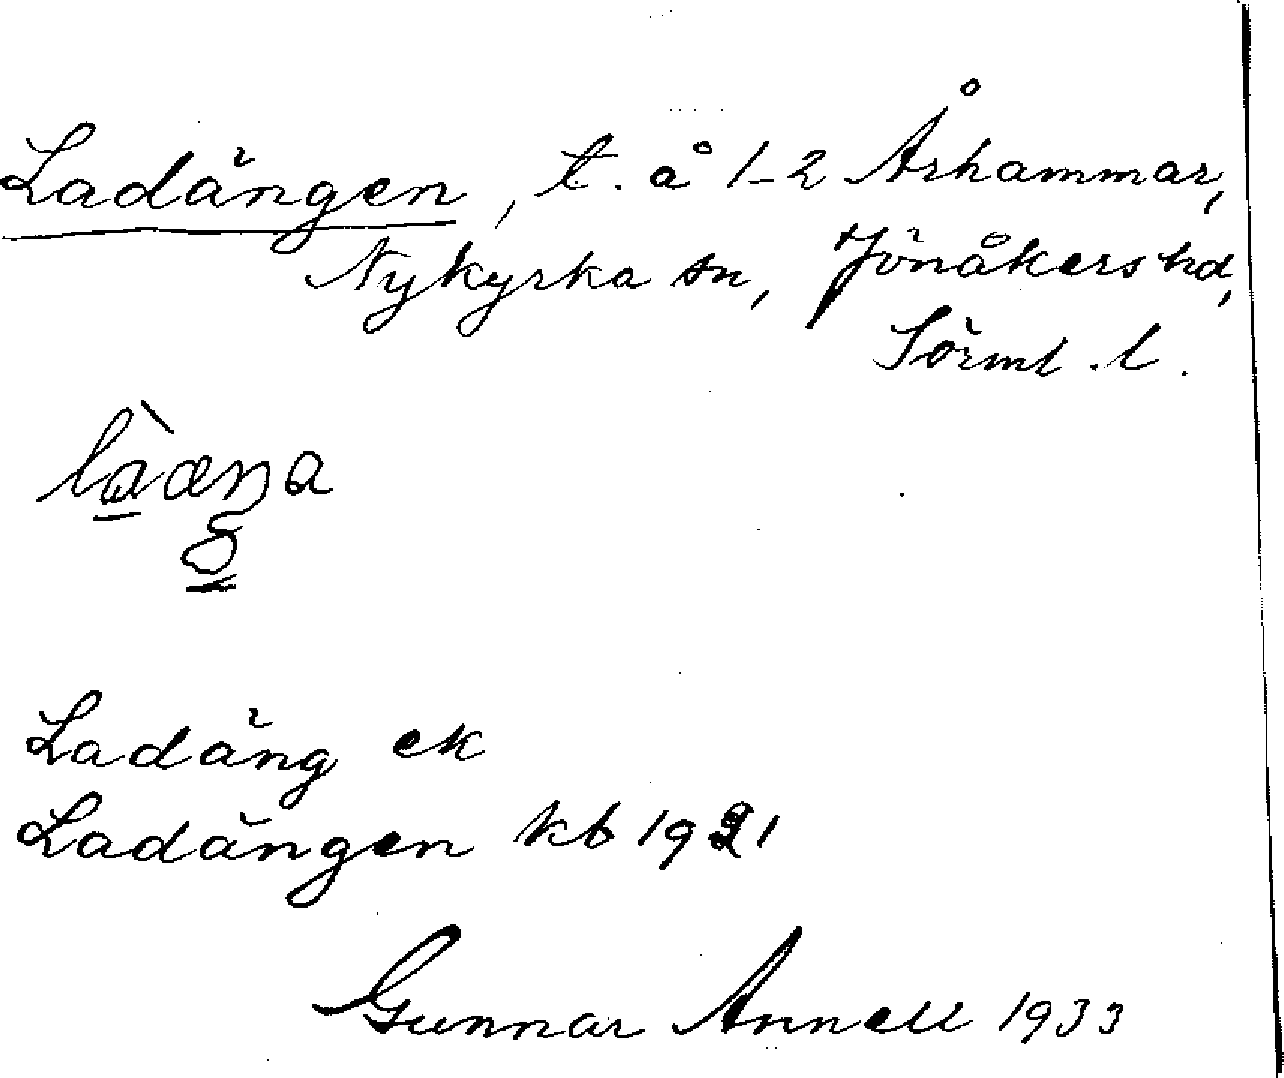 Ladängen, t. å 1-2 Århammar,
Nykyrka sn, Jönåkers hd,
Sörml. l.
Ladäng ek
Ladängen kb 1921
Gunnar Annell 1933